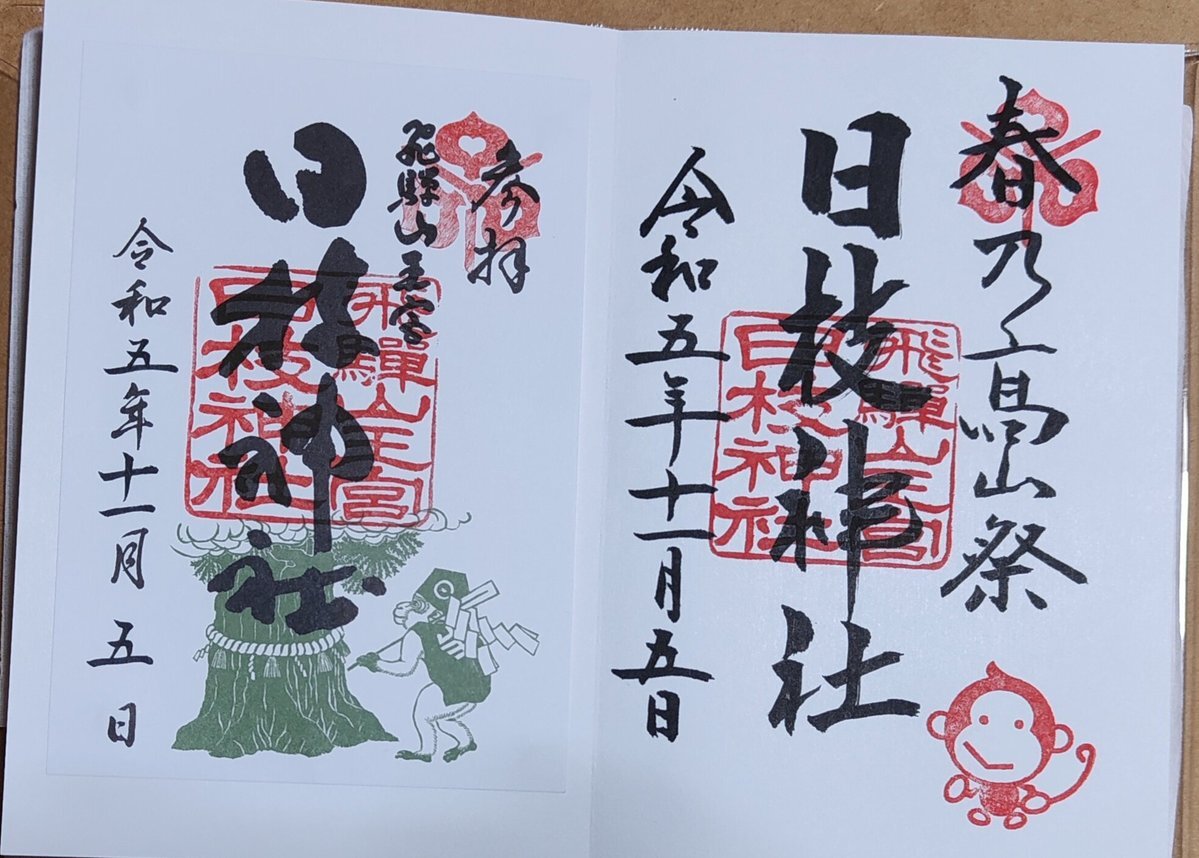 春乃高山祭
日枝神社
飛騨山王宮
日枝神社
令和五年十一月五日
参拝
飛騨山王宮
日枝神社
飛驒山王宮
日枝神社
令和五年十一月五日